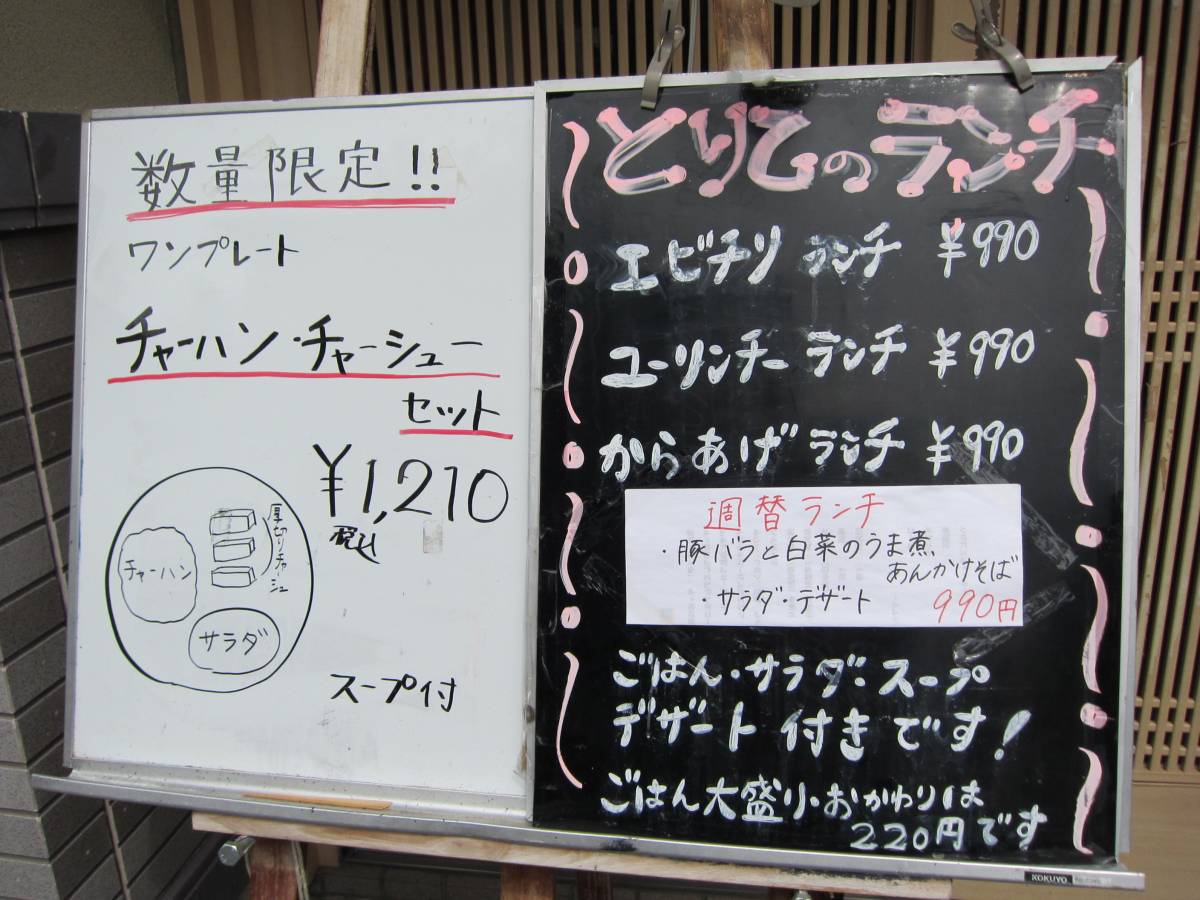 数量限定!!
ワンプレート
チャーハン・チャーシュー
セット
¥1,210
税込
チャーハン
厚切りチャーシュ
サラダ
スープ付
とりてのランチ
エビチリ ランチ ¥990
ユーリンチー ランチ ¥990
からあげ ランチ ¥990
週替ランチ
・豚バラと白菜のうま煮
あんかけそば
・サラダ・デザート 990円
ごはん・サラダ・スープ
デザート 付きです!
ごはん大盛り・おかわりは
220円です
KOKUYO